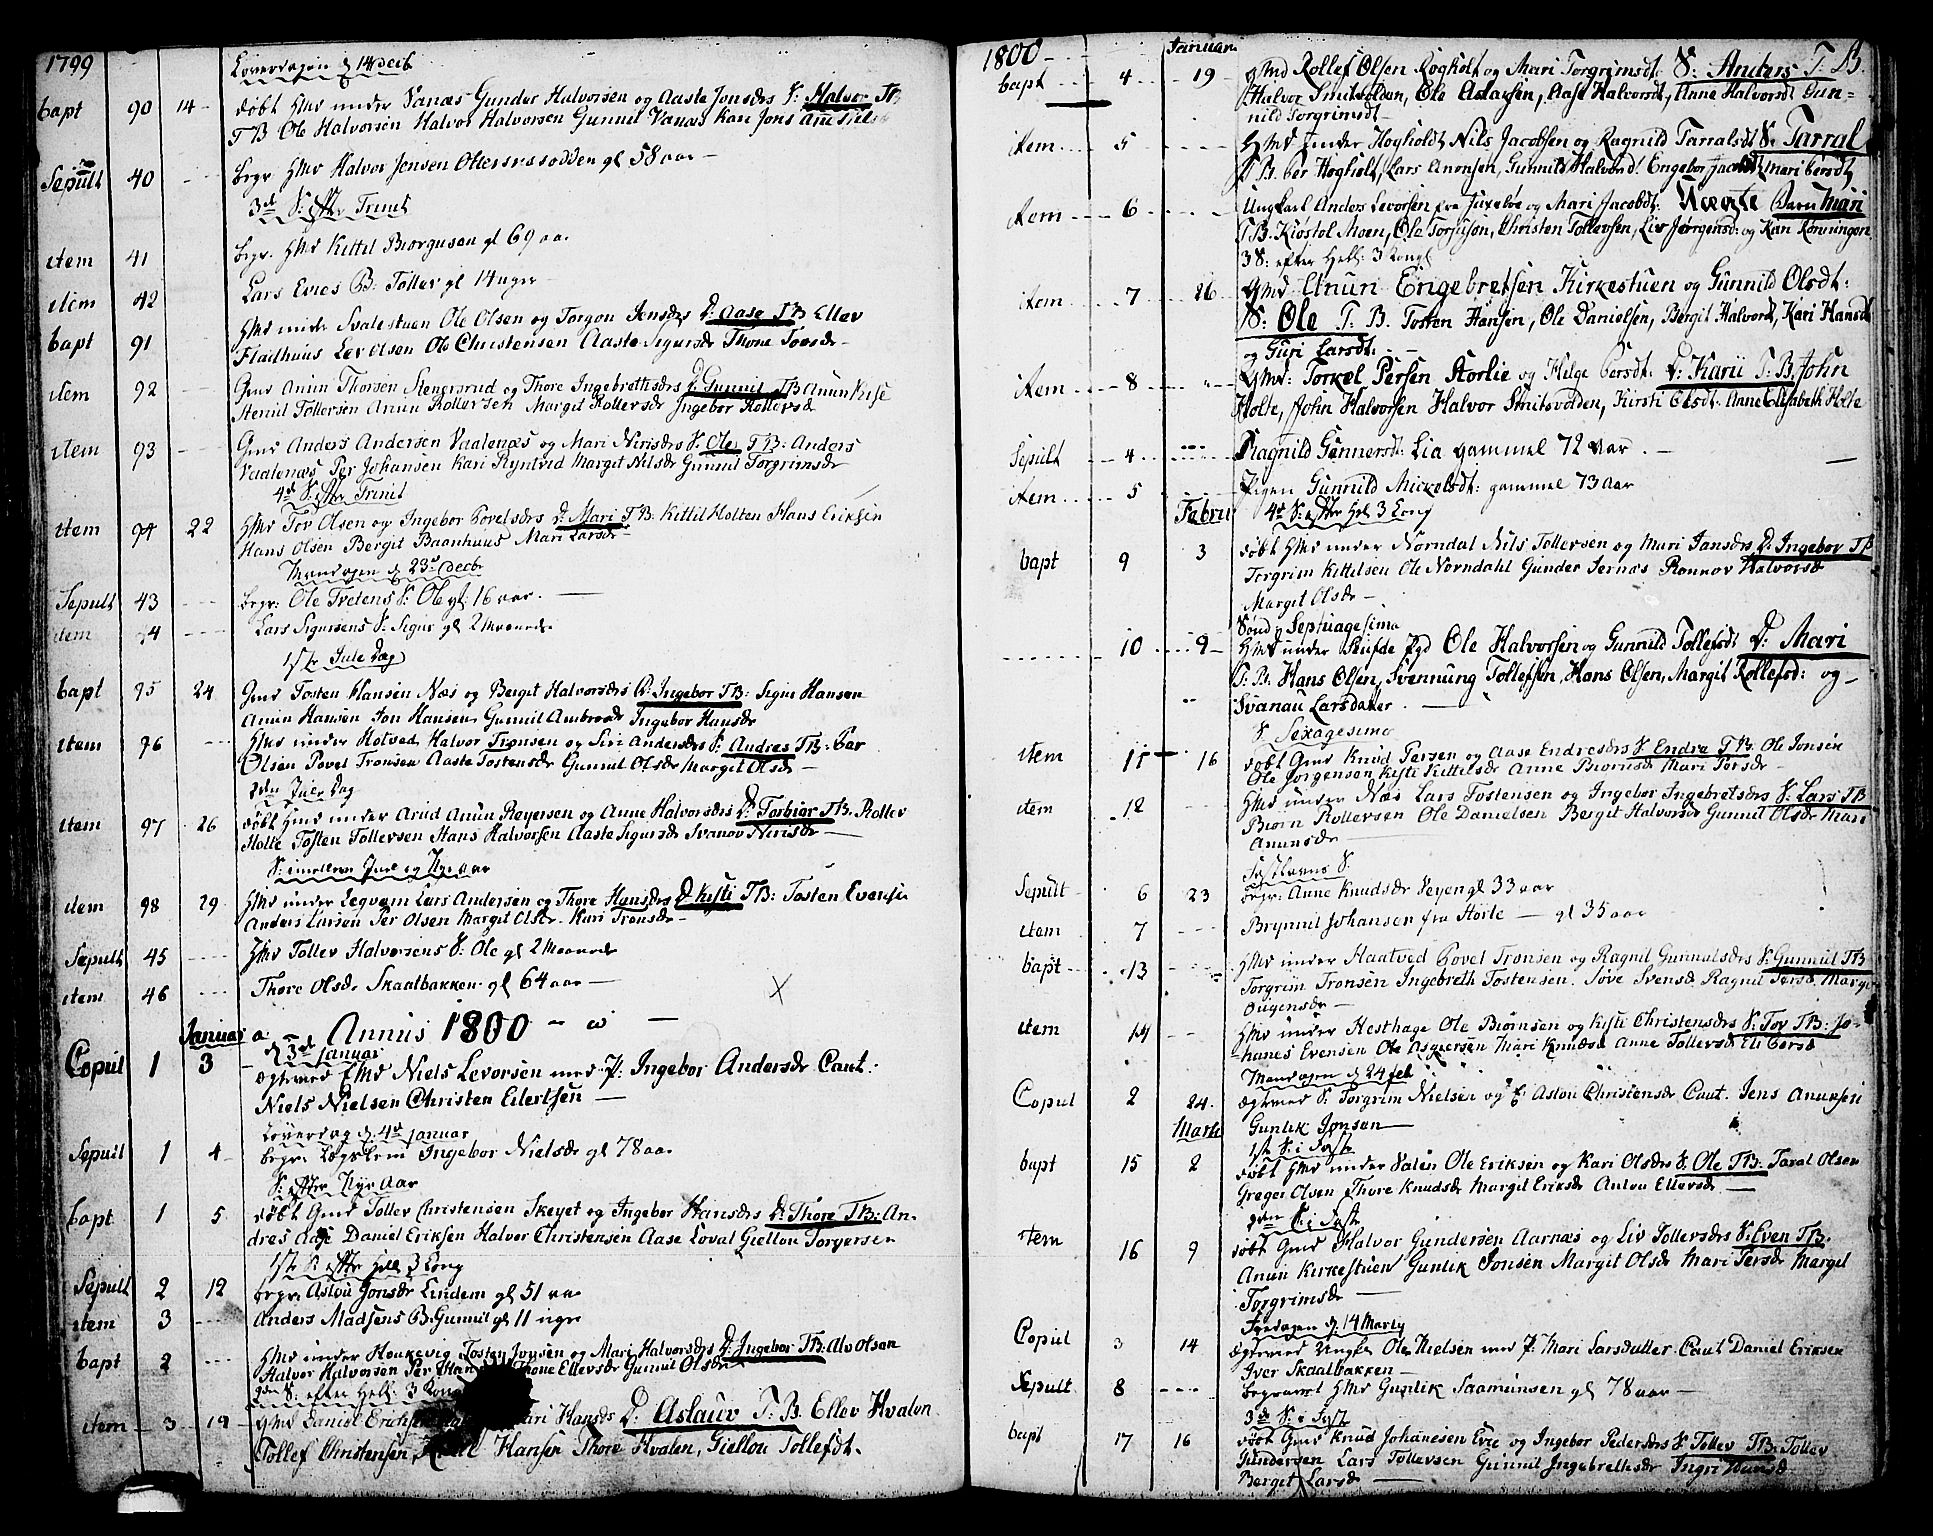 1799
Löverdagen d 14 Decb
bapt 90 14 döbt HMd under Vanæs Gunder Halvorsen og Aaste Jonsdr S: Halvor TB
TB Ole Halvorsen Halvor Halvorsen Gunnil Vanæs Kari Jons
Sepult 40 begr HMd Halvor Jensen gl 58 aar
3d S: efter Trinit
item 41 begr. HMd Kittil Biorgusen gl 69 aa.
item 42 Lars Evies B: Tollev gl 14 uger
bapt 91 HMd under Svalestuen Ole Olsen og Torgon Jensdr D: Aase TB Ellev
Fladhuus Lev Olsen Ole Christensen Aaste Sigursdr Thone Torsdr
item 92 Gmd Anun Thorsen Stengersrud og Thore Ingebrettsdr D: Gunnil TB Anun Kise
Stenul Tollevsen Anun Rollevsen Margit Rollevsdr Ingebor Rollevsd
item 93 Gmd Anders Andersen Vaalenæs og Mari Nirisdr S: Ole TB: Anders
Vaalenæs Per Johansen Kari Ryntved Margit Nilsdr Gunnil Torgrimsdr
4d S: efter Trinit
item 94 22 HMd Tov Olsen og Ingebor Povelsdrs D: Mari TB: Kittil Holten Hans Eriksen
Hans Olsen Bergit Baanhuus Mari Larsdr
Mandagen d 23 Decb
Sepult 43 begr: Ole Tvetens S: Ole gl: 16 aar.
item 44 Lars Sigursens S: Sigur gl 2 Maaneder
1ste Jule Dag
bapt 95 24 Gmd Tosten Hansen Næs og Bergit Halvorsdrs D: Ingebor TB: Sigur Hansen
Anun Hansen Jon Hansen Gunnil Ambrosdr Ingebor Hansdr
item 96 HMd under Hotved Halvor Tronsen og Siri Andersdr S: Andres TB: Per
Olsen Povel Tronsen Aaste Tostensdr Gunnil Olsdr Margit Olsdr
2den Jule Dag
item 97 26 döbt HMd under Arud Anun Reyersen og Anne Halvorsdrs D: Torbior TB: Rollev
Holte Tosten Tollevsen Hans Halvorsen Aaste Sigursdr Svanov Nirisdr
S: imellem Juul og Nye aar
item 98 29 HMd under Legvam Lars Andersen og Thore Hansdrs D Kisti TB: Tosten Evensen
Anders Larsen Per Olsen Margit Olsdr Kari Tronsdr
Sepult 45 HMd Tollev Halvorsens S: Ole gl 2 Maaneder
item 46 Thore Olsdr Skaalbakken gl 64 aar
Januar Annus 1800
d 3d Januar
Copul 1 3 ægteviet HMd Niels Levorsen med P: Ingebor Andersdr Caut:
Niels Nielsen Christen Eilertsen
Löverdag d. 4d Januar
Sepult 1 4 begr: Ingebor Nielsdr gl 78 aar
S: efter Nyt Aar
bapt 1 5 döbt Gmd Tollev Christensen Skeyet og Ingebor Hansdrs D: Thore TB: An-
dres Aase Daniel Eriksen Halvor Christensen Aase Loval Giellou Torgersen
1ste S: efter Hell 3 Kong
Sepult 2 12 begr: Aslou Jonsdr Lindem gl 51 aar
item 3 Anders Madsens B: Gunnil gl 11 uger
bapt 2 HMd under Honkevig Tosten Jonsen og Mari Halvorsdrs D: Ingebor TB Alv Olsen
Halvor Halvorsen Per Hansen Thone Ellevsdr Gunnil Olsdr
2den S: efter Hell: 3 Kong
item 3 19 GMd Daniel Eriksen Mari Hansds D: Aslauv T. B. Ellev Hvalen
Tollef Christensen, Hansen Thore Hvalen, Giellou Tollefdt.
1800 Januar
bapt 4 19 GMd Rollef Olsen Rogholt og Mari Torgrimsdt. S: Anders T. B.
Halvor Smitsvolden, Ole Aslaksen, Aase Halvorsdt, Anne Halvorsdt Gun-
nild Torgrimsdt
item 5 HMd under Høyholdt Nils Jacobsen og Ragnild Tarralsdt S: Tarral
T. B. Per Høgholt, Lars Anonsen, Gunnild Halvord. Engebor Jacobdt Mari Persdt
item 6 Ungkarl Anders Levorsen fra Juxebøe og Mari Jacobdt. Uægte Barn Mari
T. B. Kiøstol Moen, Ole Torjusøn, Christen Tollevsen, Liv Jørgensd: og Kari Rønningen
3 S: efter Hell: 3 Kong.
item 7 26 GMd Anun Engebretsen Kirkestuen og Gunnild Olsdt:
S: Ole T. B. Tosten Hansen, Ole Danielsen, Bergit Halvord, Kari Hansdt
og Guri Larsdt.
item 8 GMd: Torkel Persen Storlie og Helge Persdt. D: Karii T. B. John
Holte, John Halvorsen Halvor Smitsvolden, Kirsti Olsdt. Anne Elisabeth Holte
Sepult 4 Ragnild Gunnersdt. Lia gammel 72 Aar.
item 5 Pigen Gunnild Mickelsdt: gammel 73 aar
Febru 4d S: efter Hel 3 Kong
bapt 9 3 döbt HMd under Norndal Nils Tollevsen og Mari Jansdrs D: Ingebor TB
Torgrim Kittilsen Ole Norndahl Gunder Jernæs Rønnov Halvorsd
Margit Olsdr
Sønd. Septuagesima
10 9 HMd under Ole Halvorsen og Gunnild Tollefsdt D: Mari
T. B. Hans Olsen, Svennung Tollefsen, Hans Olsen, Margit Rollefsd: og
Svanau Larsdatter.
S: Sexagesima
item 11 16 döbt Gmd Knud Persen og Aase Endresdrs S: Endre TB. Ole Jonsen
Ole Jorgensen Kisti Kittilsdr Anne Biornsdr Mari Torsdr
item 12 HMd under Næs Lars Tostensen og Ingebor Ingebretsdrs S: Lars TB
Biorn Rollevsen Ole Danielsen Bergit Halvorsdr Gunnil Olsdr Mari
Anunsdr
Fastlavns S:
Sepult 6 23 begr: Anne Knudsdr Veyen gl 33 aar
item 7 Brynnil Johansen fra Horte gl 35 aar
bapt 13 HMd under Haatved Povel Tronsen og Ragnil Gunnulsdrs S: Gunnul TB
Torgrim Tronsen Ingebreth Tostensen. Tove Svensd Ragnil Persd Margit
item 14 HMd under Hesthage Ole Biørnsen og Kisti Christensdrs S: Tov TB: Jo-
hanes Evensen Ole Asgiersen Mari Knudsd Anne Tollevsd Eli Persd
Mandagen d 24 feb
Copul 2 24. ægteviet S: Torgrim Nielsen og E: Aslou Christensdr Caut. Jens Anunsen
Gunlik Jonsen
Marti 1ste S: i Faste
bapt 15 2 döbt HMd under Valen Ole Eriksen og Kari Olsdrs S: Ole TB: Taral Olsen
Greger Olsen Thore Knudsdr Margit Eriksdr Anlou Ellevsdr
2den S: i Faste
item 16 9 döbt Gmd Halvor Gundersen Aarnæs og Liv Tollevsdrs S: Even TB.
Anun Kirkestuen Gunlik Jonsen Margit Olsdr Mari Persdr Margit
Torgrimsdr
Fredagen d. 14 Marty
Copul 3 14 ægteviet Ungk. Ole Nielsen med P: Mari Larsdatter Caut Daniel Eriksen
Iver Skaalbakken
Sepult 8 begravet HMd Gunlik Saamunsen gl 78 aar
3d S: i Faste
bapt 17 16 döbt Gmd Knud Johanesen Evie og Ingebor Pedersdrs S: Tollev TB: Tollev
Gundersen Lars Tollevsen Gunnil Ingebrethsdr Ingri Hansd
Berget Larsdr